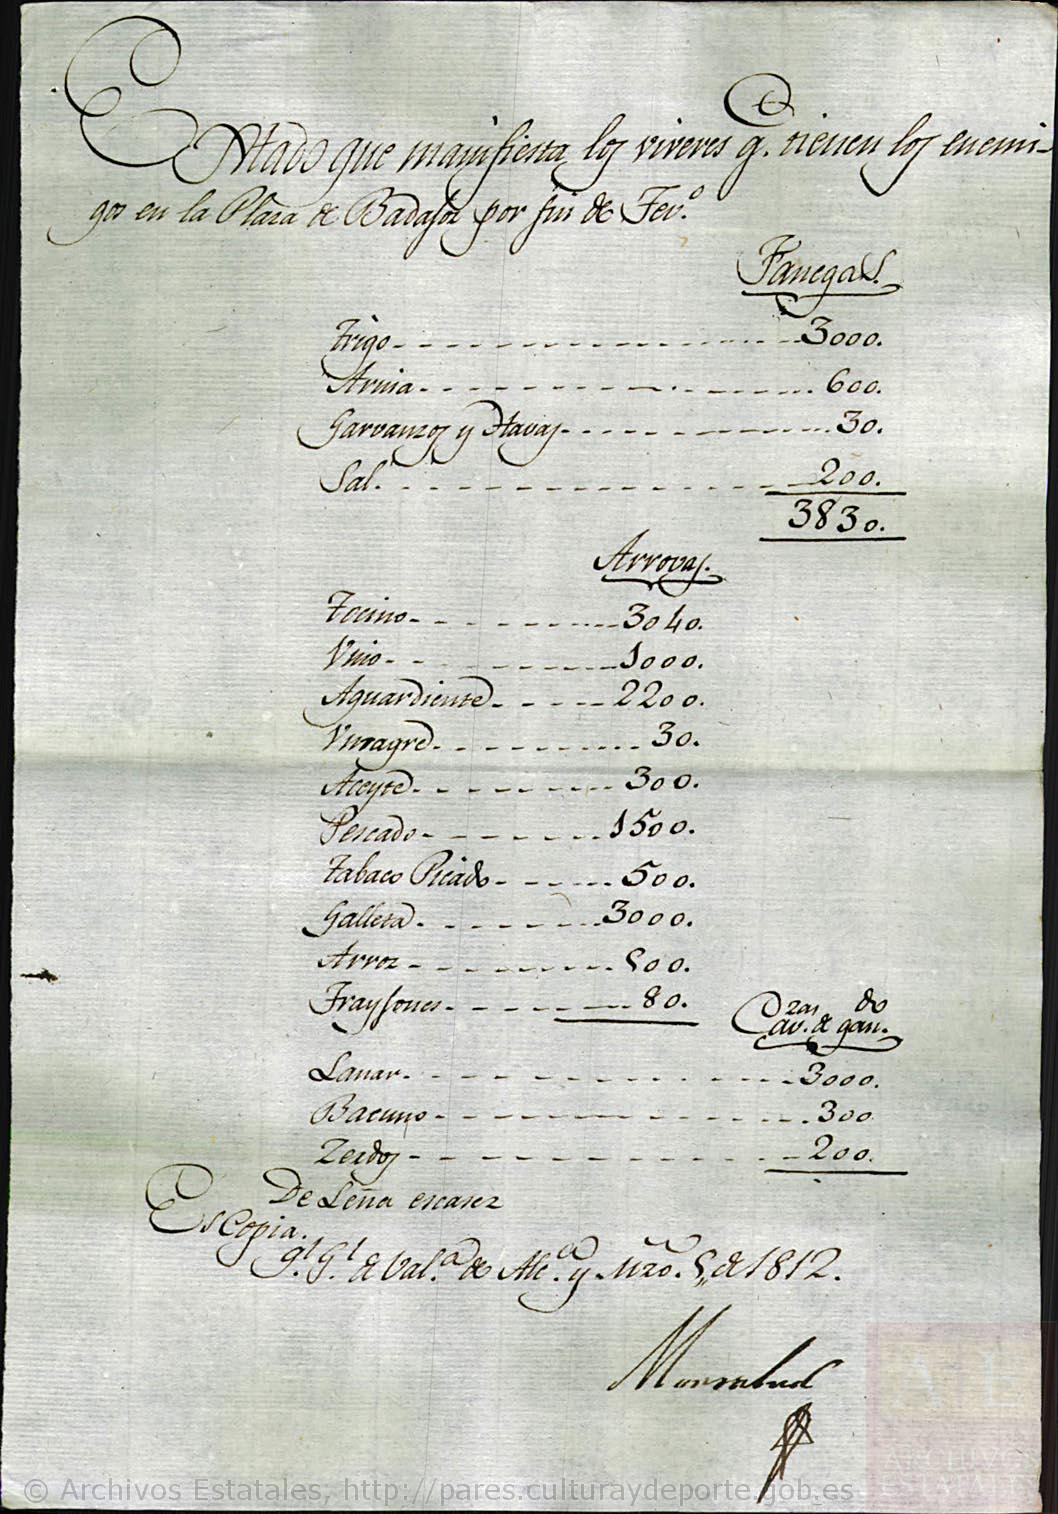 Estado que manifiesta los viveres q. tienen los enemi-
gos en la Plaza de Badajoz por fin de Fev.o
Fanegas.
Trigo 3000.
Arina 600.
Garvanzos y Havas 30.
Sal. 200.
3830.
Arrovas.
Tocino 3040.
Vino 1000.
Aguardiente 2200.
Vinagre 30.
Aceyte 300.
Pescado 1500.
Tabaco Picado 500.
Galleta 3000.
Arroz 500.
Fraysones 80.
Cavzas. de gando.
Lanar. 3000.
Bacuno 300
Zerdos 200.
De Leña escasez
Es Copia.
Q.l G.l de Val.a de Alc.a y Mzo. 5,, de 1812.
Monsalud
© Archivos Estatales, http://pares.culturaydeporte.gob.es
ARCHIVOS
ESTATALES